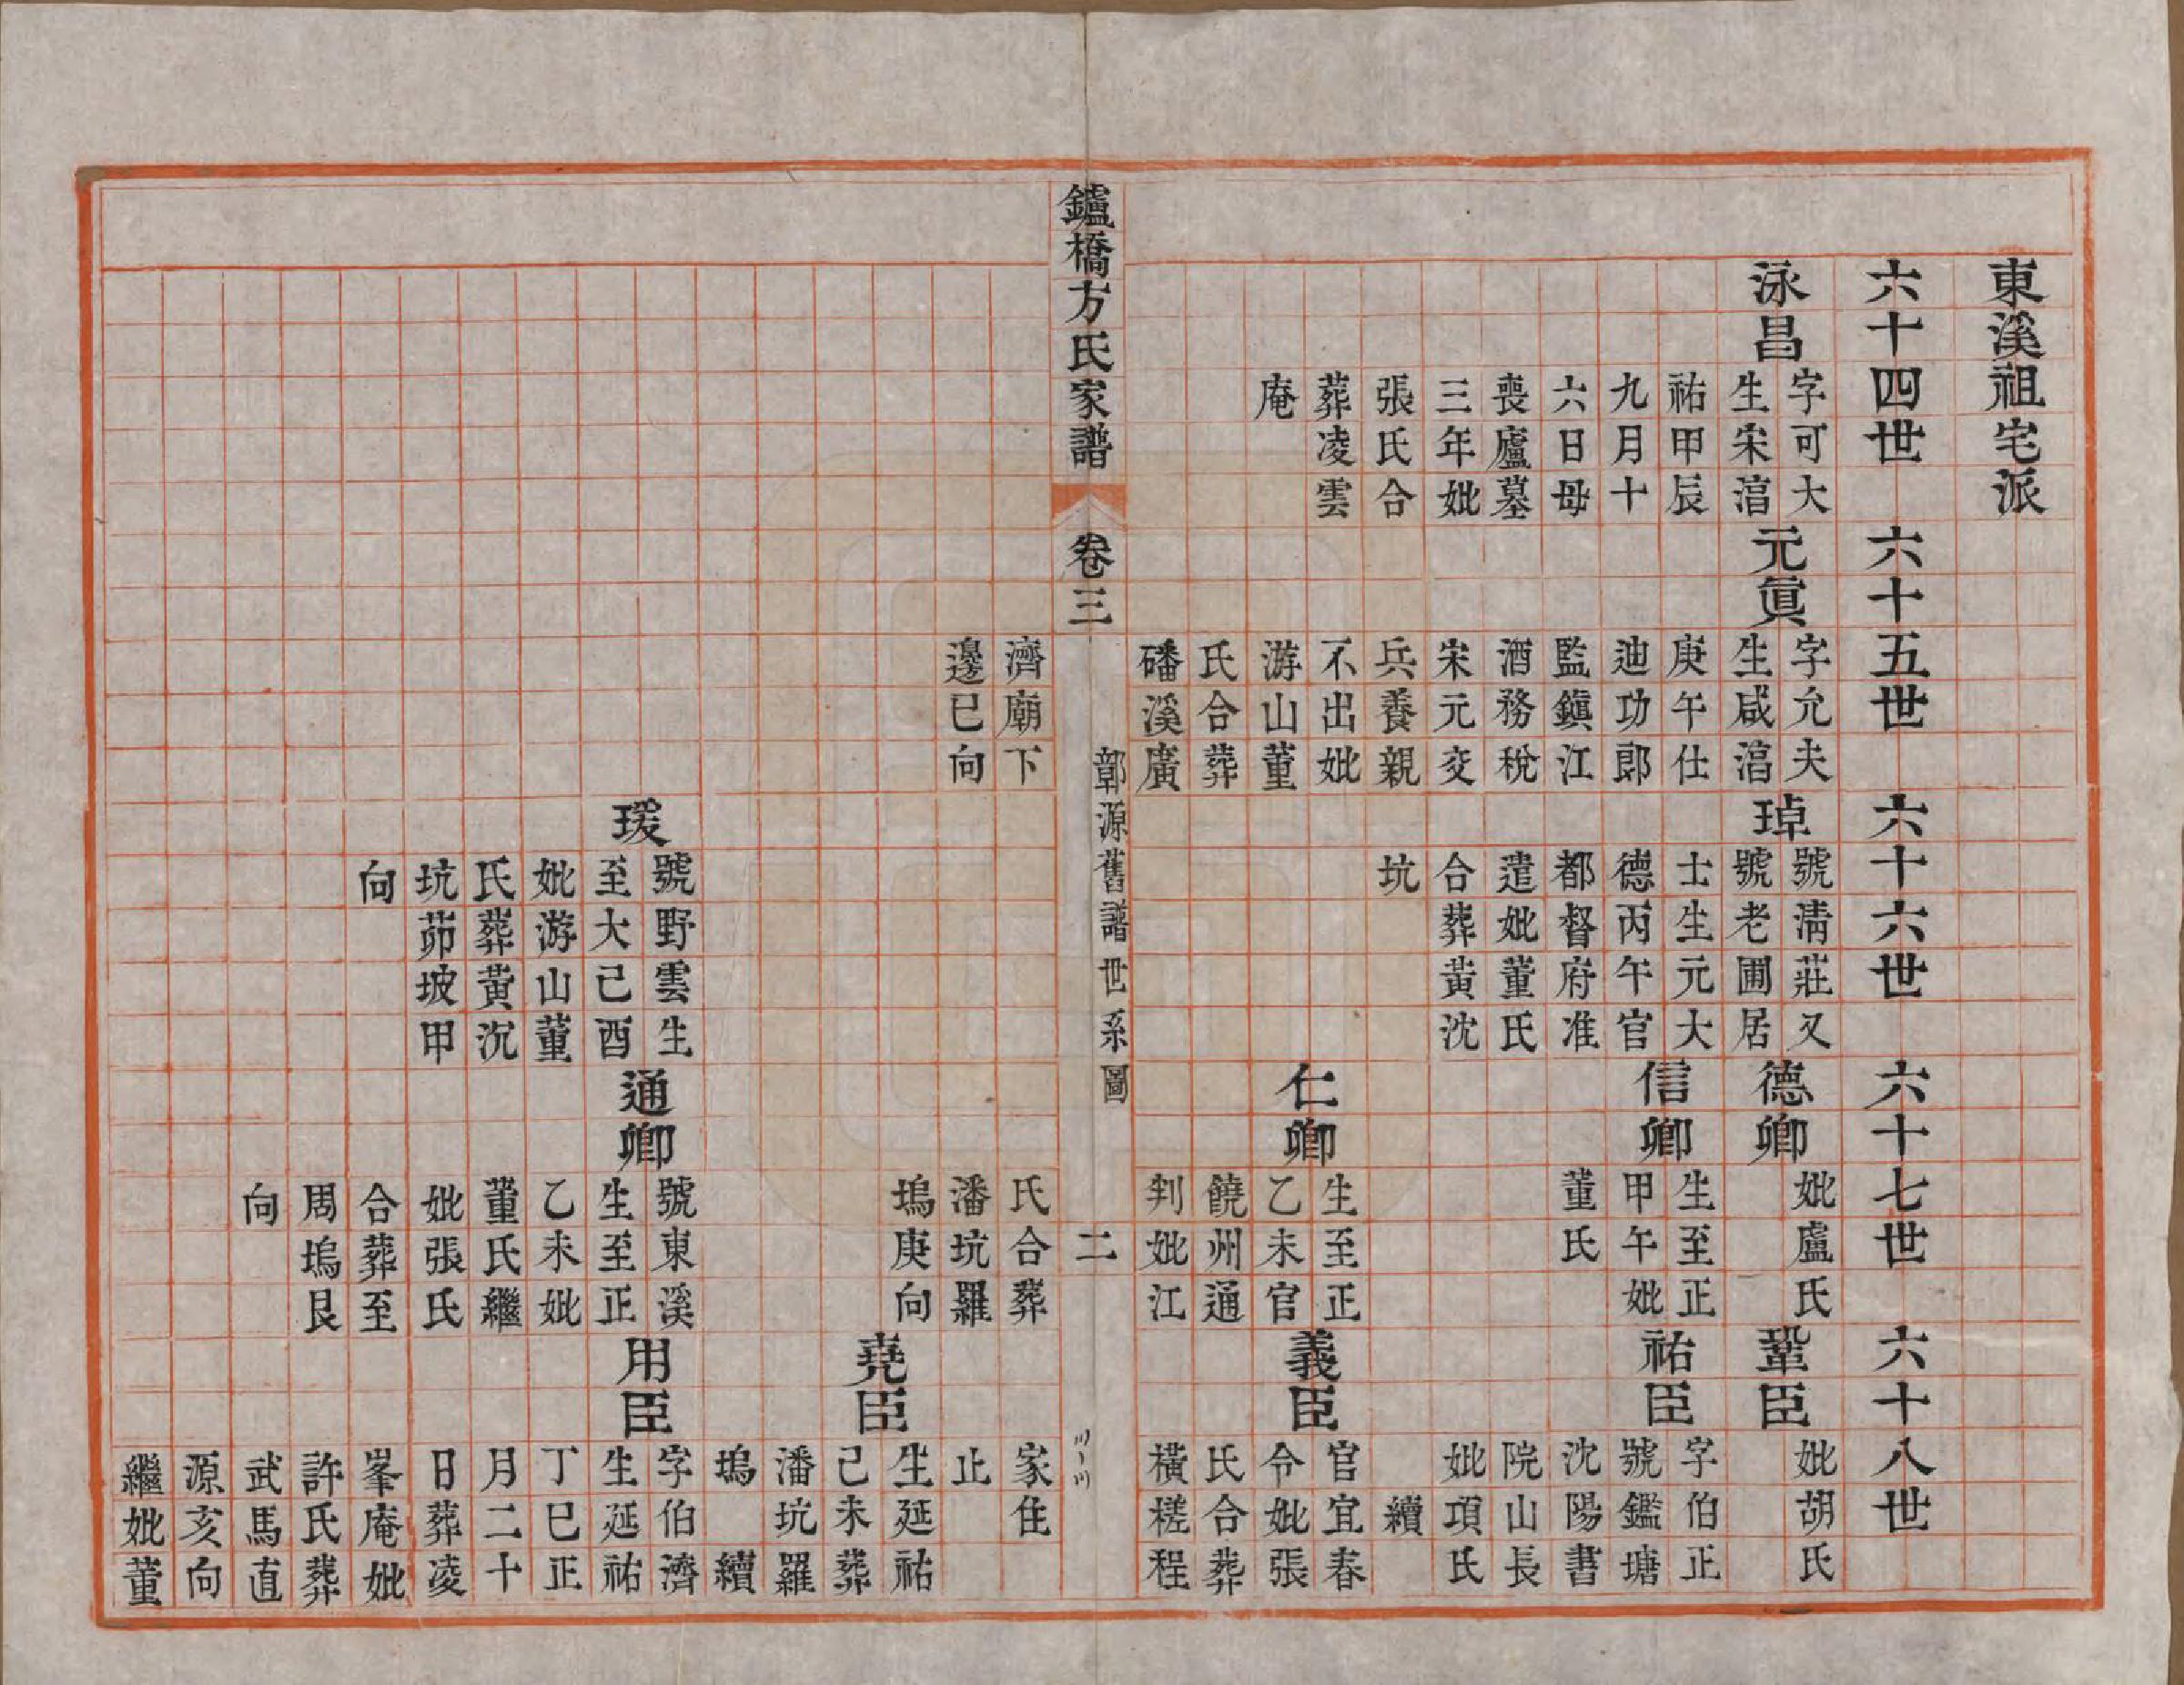 東溪祖宅派
六十四世
泳昌
字可大
生宋湻
祐甲辰
九月十
六日母
喪廬墓
三年妣
張氏合
葬凌雲
庵
六十五世
元眞
字允夫
生咸湻
庚午仕
迪功郎
監鎭江
酒務稅
宋元交
兵養親
不出妣
游山董
氏合葬
磻溪廣
濟廟下
邊巳向
六十六世
琸
號淸莊又
號老圃居
士生元大
德丙午官
都督府准
遣妣董氏
合葬黃沈
坑
瑗
號野雲生
至大己酉
妣游山董
氏葬黃沉
坑茆坡甲
向
六十七世
德卿
妣盧氏
信卿
生至正
甲午妣
董氏
仁卿
生至正
乙未官
饒州通
判妣江
氏合葬
潘坑羅
塢庚向
通卿
號東溪
生至正
乙未妣
董氏繼
妣張氏
合葬至
周塢艮
向
六十八世
鞏臣
妣胡氏
祐臣
字伯正
號鑑塘
沈陽書
院山長
妣項氏
續
義臣
官宜春
令妣張
氏合葬
橫槎程
家住
止
堯臣
生延祐
己未葬
潘坑羅
塢 續
用臣
字伯濟
生延祐
丁巳正
月二十
日葬凌
峯庵妣
許氏葬
武馬直
源亥向
繼妣董
鑪橋方氏家譜
卷三
鄣源舊譜世系圖
二